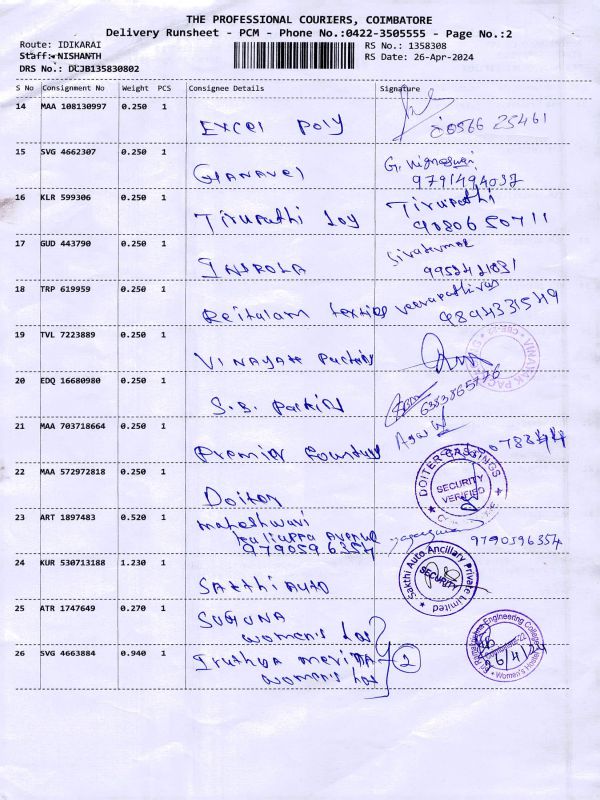 THE PROFESSIONAL COURIERS, COIMBATORE
Delivery Runsheet - PCM - Phone No.:0422-3505555 - Page No.:2
Route: IDIKARAI
Staff: NISHANTH
DRS No.: DCJB135830802
RS No.: 1358308
RS Date: 26-Apr-2024
S No Consignment No Weight PCS Consignee Details Signature
14 MAA 108130997 0.250 1
Excel Poly
25461
15 SVG 4662307 0.250 1
G.
9791494037
16 KLR 599306 0.250 1
Tirupathi
Tirupathi
9080650711
17 GUD 443790 0.250 1
18 TRP 619959 0.250 1
19 TVL 7223889 0.250 1
VINAYAK
VINAYAK
20 EDQ 16680980 0.250 1
S.S.
21 MAA 703718664 0.250 1
Premier
22 MAA 572972818 0.250 1
Doiter
DOITER CASTINGS
SECURITY
VERIFIED
23 ART 1897483 0.520 1
Maheshwari
9790596354
9790596354
24 KUR 530713188 1.230 1
SAKTHI AUTO
Sakthi Auto Ancillary Private Limited
SECURITY
25 ATR 1747649 0.270 1
SUGUNA
women's
26 SVG 4663884 0.940 1
women's
2
Engineering College
Women's Hostel
26/4/24